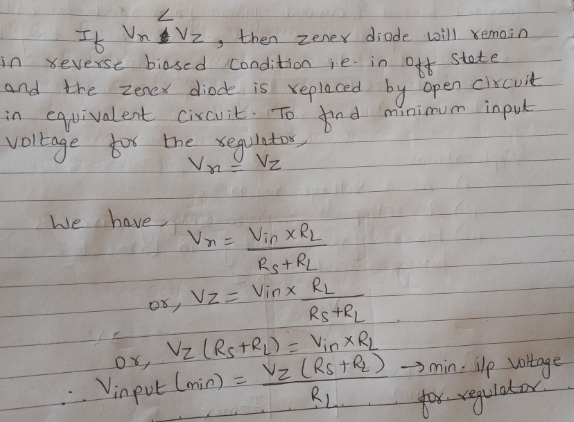 <
If Vn Vz, then zener diode will remain
in reverse biased condition i.e. in off state
and the zener diode is replaced by open circuit
in equivalent circuit. To find minimum input
voltage for the regulator,
Vn = Vz
We have,
Vn = Vin × RL / Rs + RL
or, Vz = Vin × RL / Rs + RL
or, Vz (Rs + RL) = Vin × RL
∴ Vinput (min) = Vz (Rs + RL) / RL → min. i/p voltage
for regulator.